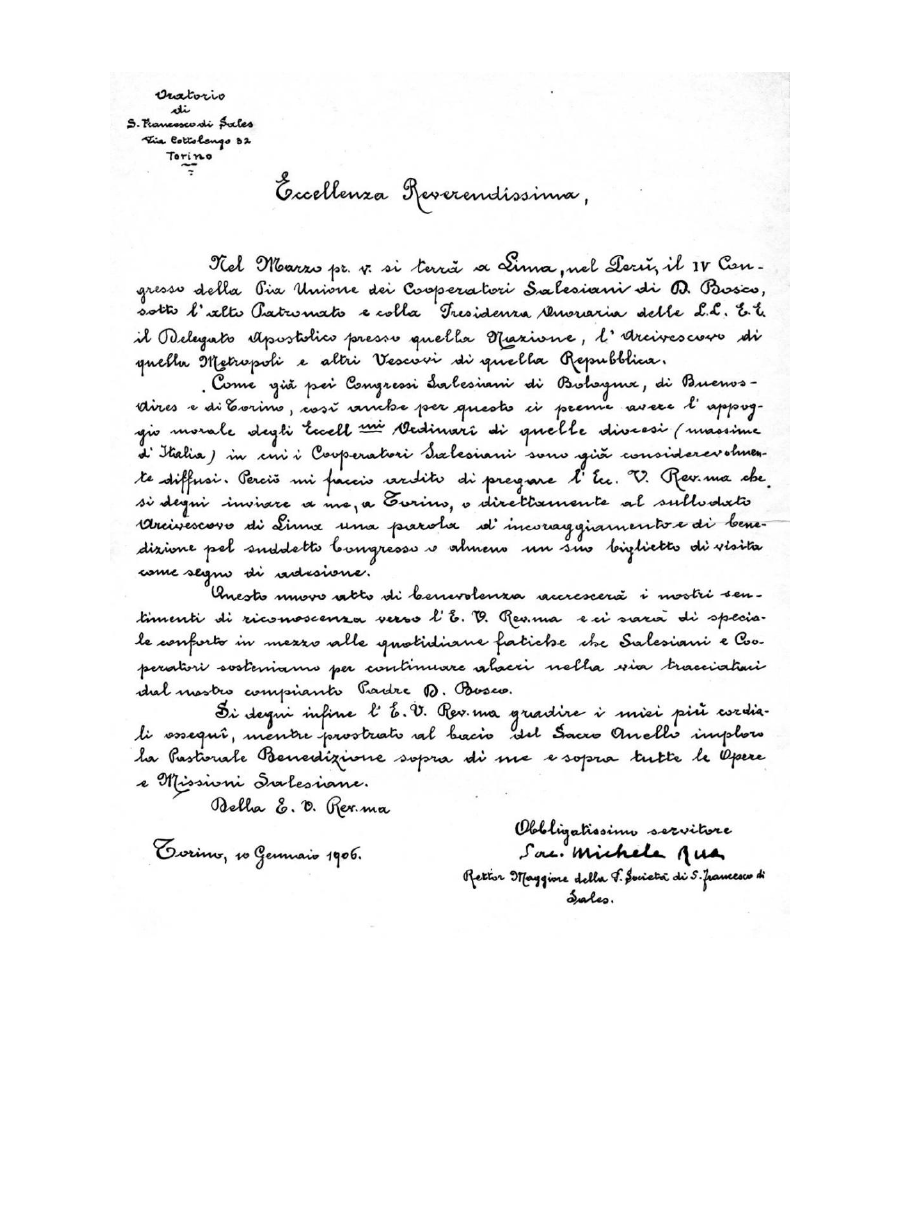 Oratorio
di
S. Francesco di Sales
Via Cottolengo 32
Torino
Eccellenza Reverendissima,
Nel Marzo pr. v. si terrà a Lima, nel Perù, il IV Con-
gresso della Pia Unione dei Cooperatori Salesiani di D. Bosco,
sotto l'alto Patronato e colla Presidenza Onoraria delle LL. EE.
il Delegato Apostolico presso quella Nazione, l'Arcivescovo di
quella Metropoli e altri Vescovi di quella Repubblica.
Come già pei Congressi Salesiani di Bologna, di Buenos-
Aires e di Torino, così anche per questo ci preme avere l'appog-
gio morale degli Eccell.mi Ordinarî di quelle diocesi (massime
d'Italia) in cui i Cooperatori Salesiani sono già considerevolmen-
te diffusi. Perciò mi faccio ardito di pregare l'Ecc. V. Rev.ma che
si degni inviare a me, a Torino, o direttamente al sullodato
Arcivescovo di Lima una parola d'incoraggiamento e di bene-
dizione pel suddetto Congresso o almeno un suo biglietto di visita
come segno di adesione.
Questo nuovo atto di benevolenza accrescerà i nostri sen-
timenti di riconoscenza verso l'E. V. Rev.ma e ci sarà di specia-
le conforto in mezzo alle quotidiane fatiche che Salesiani e Coo-
peratori sosteniamo per continuare alacri nella via tracciataci
dal nostro compianto Padre D. Bosco.
Si degni infine l'E. V. Rev.ma gradire i miei più cordia-
li ossequî, mentre prostrato al bacio del Sacro Anello imploro
la Pastorale Benedizione sopra di me e sopra tutte le Opere
e Missioni Salesiane.
Della E. V. Rev.ma
Obbligatissimo servitore
Torino, 10 Gennaio 1906.
Sac. Michele Rua
Rettor Maggiore della P. Società di S. Francesco di
Sales.